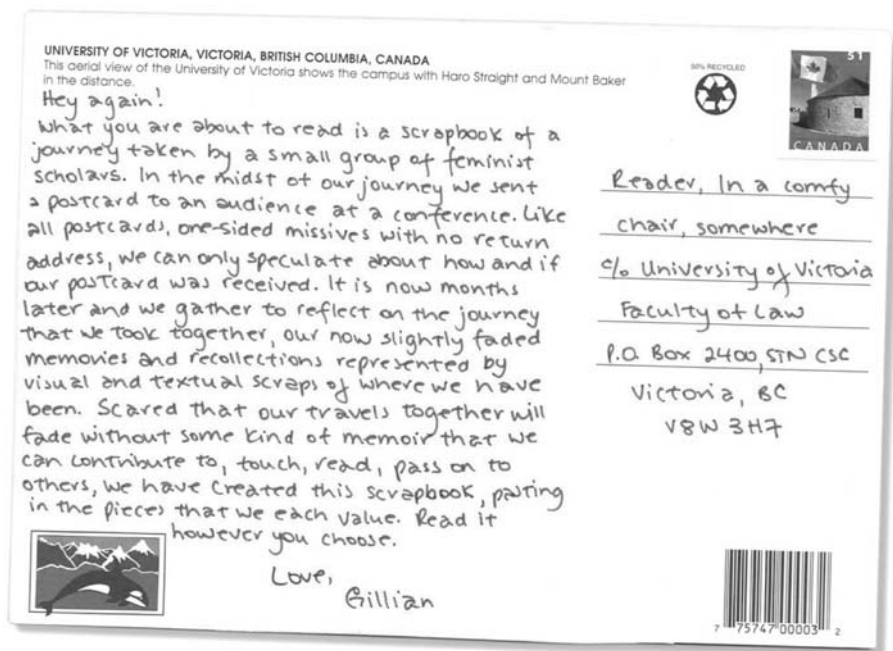 UNIVERSITY OF VICTORIA, VICTORIA, BRITISH COLUMBIA, CANADA
This aerial view of the University of Victoria shows the campus with Haro Straight and Mount Baker
in the distance.
Hey again!
What you are about to read is a scrapbook of a
journey taken by a small group of feminist
scholars. In the midst of our journey we sent
a postcard to an audience at a conference. Like
all postcards, one-sided missives with no return
address, we can only speculate about how and if
our postcard was received. It is now months
later and we gather to reflect on the journey
that we took together, our now slightly faded
memories and recollections represented by
visual and textual scraps of where we have
been. Scared that our travels together will
fade without some kind of memoir that we
can contribute to, touch, read, pass on to
others, we have created this scrapbook, pasting
in the pieces that we each value. Read it
however you choose.
Love,
Gillian
50% RECYCLED
$1
CANADA
Reader, In a comfy
chair, somewhere
c/o University of Victoria
Faculty of Law
P.O. Box 2400, STN CSC
Victoria, BC
V8W 3H7
7 75747 00003 2